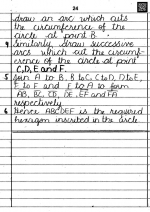 24
draw an arc which cuts
the circumference of the
circle at point B.
4 Similarly, draw successive
arcs which cut the circumf-
erence of the circle at point
C, D, E and F.
5 Join A to B, B to C, C to D, D to E
E to F and F to A to form
AB, BC, CD, DE, EF and FA
respectively
6 Hence ABCDEF is the required
hexagon inscribed in the circle.